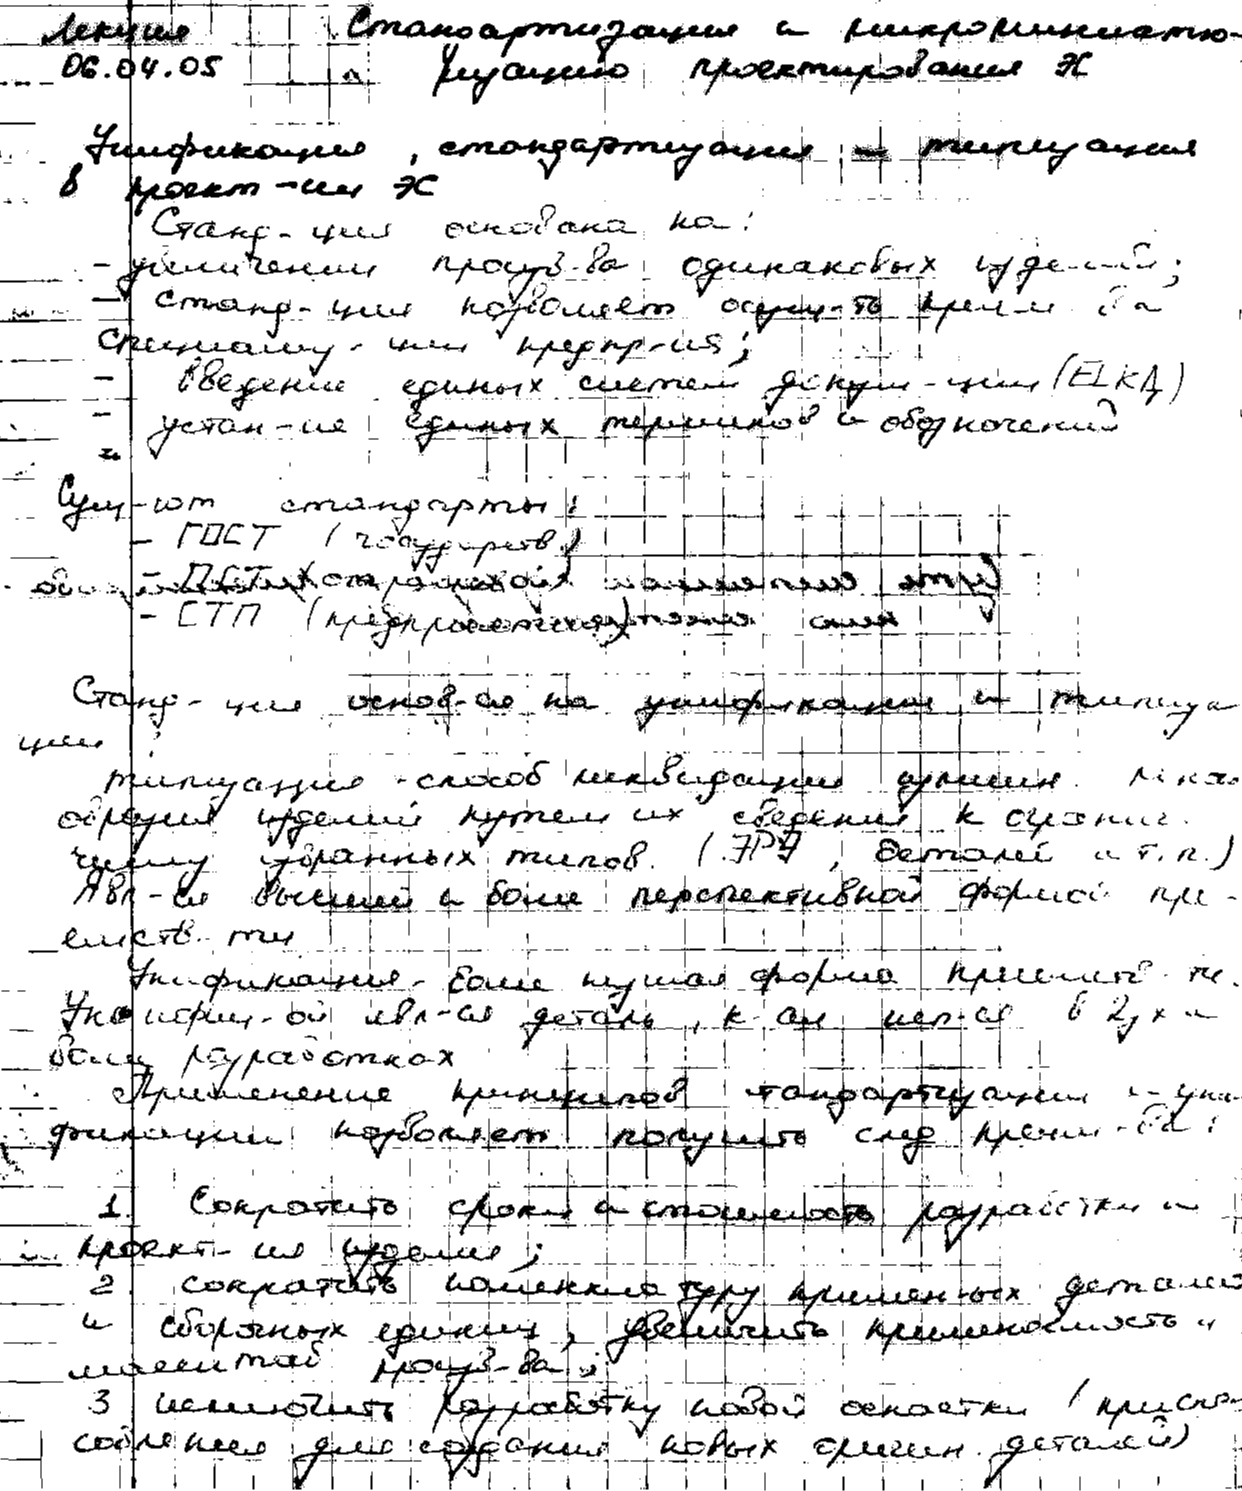 Лекция Стандартизация и микроминиатю-
06.04.05 ризацию проектирования ЭС
Унификация, стандартизация — типизация
в проект-ии ЭС
Станд-ция основана на:
- увеличении произв-ва одинаковых изделий;
- станд-ция позволяет осущ-ть
специализ-ции предпр-ия;
- Введение единых систем докум-ции (ЕСКД)
- устан-ие единых терминов и обозначений
Сущ-ют стандарты:
- ГОСТ (государств.)
- ОСТ
- СТП (предпр
Станд-ция основ-ся на унификации и типиза
ции:
типизация - способ ликвидации излишн. много
образия изделий путем их сведения к огранич.
числу избранных типов. (ЭРЭ, деталей и т.п.)
Явл-ся высшей и более перспективной формой пре-
емств-ти
Унификация - более низшая форма преемств-ти.
Унифиц-ой явл-ся деталь, к-ая исп-ся в 2ух и
более разработках
Применение принципов стандартизации и уни
фикации позволяет получить след преим-ва:
1. Сократить сроки и стоимость разработки и
проект-ия изделия;
2. сократить номенклатуру примен-ых деталей
и сборочных единиц, увеличить применяемость и
масштаб произв-ва;
3 исключить разработку новой оснастки (приспо
собления для создания новых оригин. деталей)